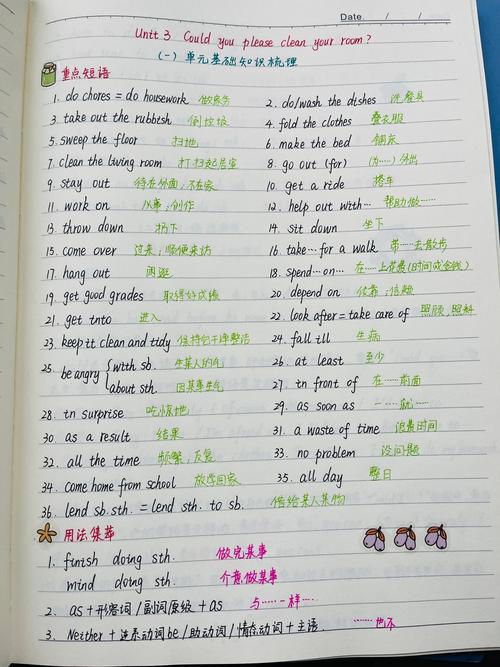 Date.    /    /
Unit 3 Could you please clean your room?
(一) 单元基础知识梳理
重点短语
1. do chores = do housework 做家务 2. do/wash the dishes 洗餐具
3. take out the rubbish 倒垃圾 4. fold the clothes 叠衣服
5. sweep the floor 扫地 6. make the bed 铺床
7. clean the living room 打扫起居室 8. go out (for) (为……)外出
9. stay out 待在外面;不在家 10. get a ride 搭车
11. work on 从事;创作 12. help out with… 帮助做……
13. throw down 扔下 14. sit down 坐下
15. come over 过来;顺便来访 16. take…for a walk 带…去散步
17. hang out 闲逛 18. spend…on… 在……上花费(时间或金钱)
19. get good grades 取得好成绩 20. depend on 依靠;信赖
21. get into 进入 22. look after = take care of 照顾,照料
23. keep it clean and tidy 保持它干净整洁 24. fall ill 生病
25. be angry with sb. 生某人的气 26. at least 至少
about sth. 因某事生气 27. in front of 在……前面
28. in surprise 吃惊地 29. as soon as 一……就……
30. as a result 结果 31. a waste of time 浪费时间
32. all the time 频繁;反复 33. no problem 没问题
34. come home from school 放学回家 35. all day 整日
36. lend sb. sth. = lend sth. to sb. 借给某人某物
用法集萃
1. finish doing sth. 做完某事
mind doing sth. 介意做某事
2. as+形容词/副词原级+as 与……一样…
3. Neither+连系动词be/助动词/情态动词+主语. ……也不